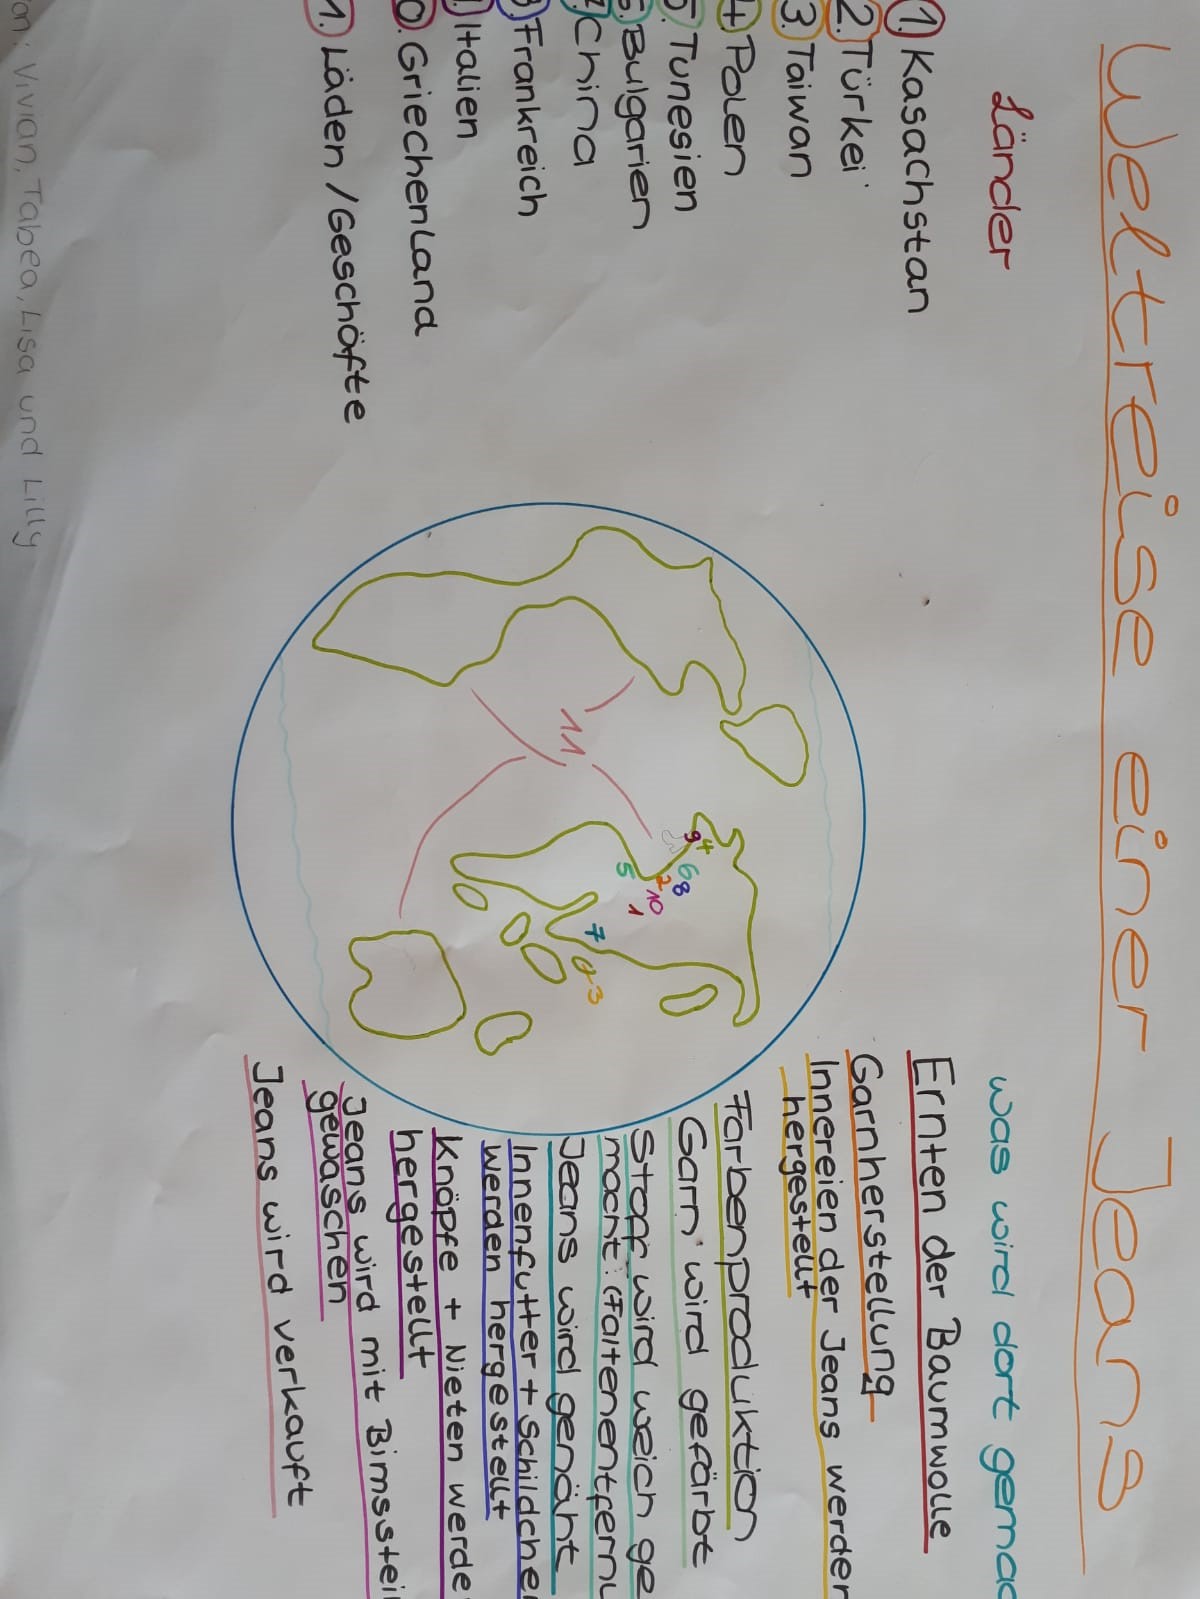 Weltreise einer Jeans
Länder
1. Kasachstan
2. Türkei
3. Taiwan
4 Polen
5. Tunesien
6. Bulgarien
7. China
8. Frankreich
Italien
0. Griechenland
1. Läden / Geschäfte
on: Vivian, Tabea, Lisa und Lilly
11
9
4
6
8
2
10
5
1
7
3
was wird dort gemac
Ernten der Baumwolle
Garnherstellung
Innereien der Jeans werden
hergestellt
Farbenproduktion
Garn wird gefärbt
Stoff wird weich ge
macht (Faltenentfernu
Jeans wird genäht
Innenfutter + Schildchen
werden hergestellt
Knöpfe + Nieten werde
hergestellt
Jeans wird mit Bimsstei
gewaschen
Jeans wird verkauft